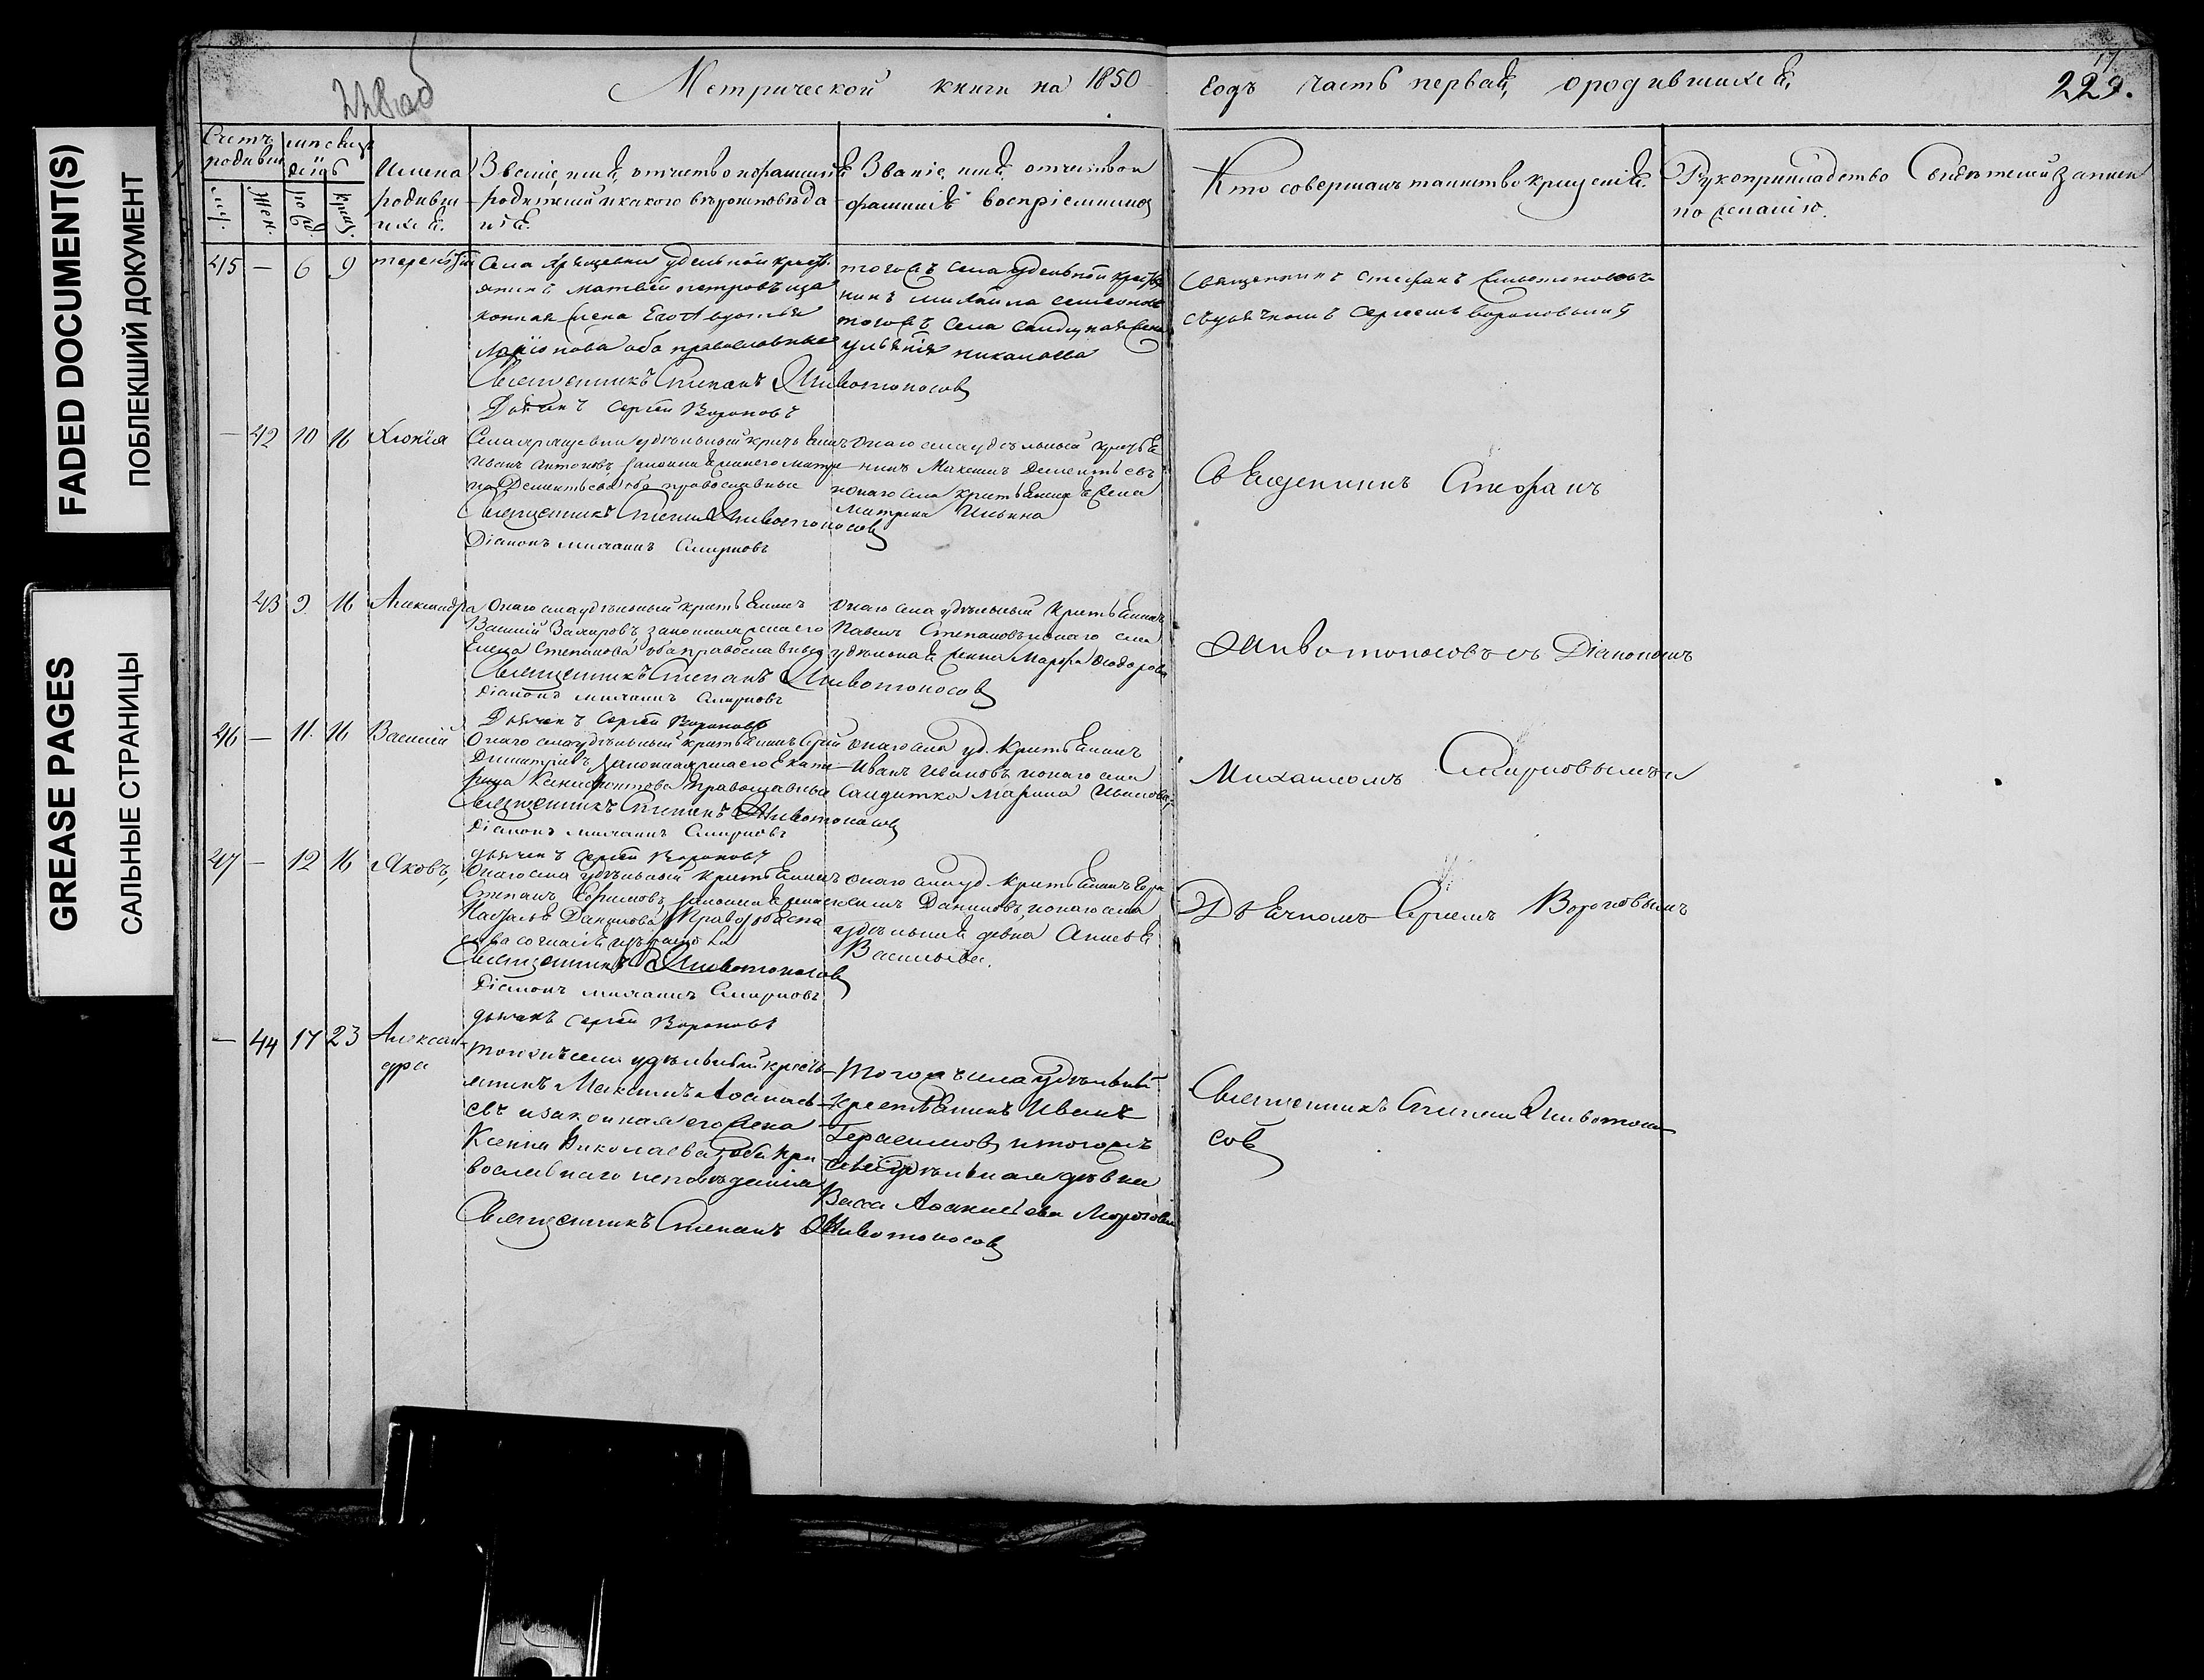 FADED DOCUMENT(S)
ПОБЛЕКШИЙ ДОКУМЕНТ
GREASE PAGES
САЛЬНЫЕ СТРАНИЦЫ
228 об
Метрической книги на 1850
годъ часть первая, о родившихся,
17
229.
Счетъ родивш
муж. Жен.
мѣсяцъ день
рожд. крещ.
Имена родивш ихся.
Званіе, имя, отчество и фамилія
родителей и какого вѣроисповѣда
нія.
Званіе, имя, отчество и
фамилія воспріемниковъ
Кто совершалъ таинство крещенія.
Рукоприкладство свидѣтелей записи
по желанію.
45 — 6 9 терентій
Села Хрящевки удельной крест
янинъ Матвей петровъ и за
конная жена Его Авдотья
Ларіонова оба православные
Священникъ Стефанъ Животоносовъ
Дьячекъ Сергей Вороновъ
тогожъ села удельной крестья
нинъ Михайла семеновъ
тогожъ села
Священникъ стефанъ Животоносовъ
съ дьячкомъ Сергеемъ вороновымъ
— 42 10 16 Хіонія
Села хрящевки удѣльный крестьянинъ
Иванъ Антоновъ, законная жена его Матре
на Дементьева оба православные
Священникъ Стефанъ Животоносовъ
Діаконъ михаилъ Смирновъ
онаго села удѣльный крестья
нинъ Максимъ Дементьевъ
и онаго села крестьянина жена
Матрена Ильина
Священникъ Стефанъ
43 9. 16 Александра
Онаго села удѣльный крестьянинъ
Василій Захаровъ, законная жена его
Елена Степанова, оба православные
Священникъ Стефанъ Животоносовъ
Діаконъ михаилъ Смирновъ
Дьячекъ Сергей Вороновъ
Онаго села удѣльный крестьянинъ
Павелъ Степановъ и онаго села
удѣльная Марфа Феодорова
Животоносовъ съ Діакономъ
46 — 11. 16 Василій
Онаго села удѣльный крестьянинъ
Димитріевъ, законная жена его Екате
рина Ксенофонтова православные
Священникъ Стефанъ Животоносовъ
Діаконъ михаилъ Смирновъ
дьячекъ Сергей Вороновъ
онаго села уд. крестьянинъ
Иванъ Ивановъ и онаго села
Солдатка Марина Иванова,
Михаиломъ Смирновымъ и
47 — 12 16 Яковъ,
Онаго села удѣльный крестьянинъ
Степанъ Ефимовъ, законная жена его
Наталья Данилова
Священникъ Животоносовъ
Діаконъ михаилъ Смирновъ
дьячекъ Сергей Вороновъ
онаго села уд. крестьянинъ
Даниловъ, и онаго села
удѣльная девка
Васильева.
Дьячкомъ Сергеемъ Вороновымъ
— 44 17 23 Алексан
дра
тогожъ села удѣльный кресть
янинъ Максимъ Афанась
евъ и законная его жена
Ксенія Николаева, оба пра
вославнаго исповѣданія
Священникъ Стефанъ Животоносовъ
Тогожъ села удѣльный
крестьянинъ Иванъ
Герасимовъ и тогожъ
села удѣльная дѣвка
Васса Морозова
Священникъ Стефанъ Животоно
совъ